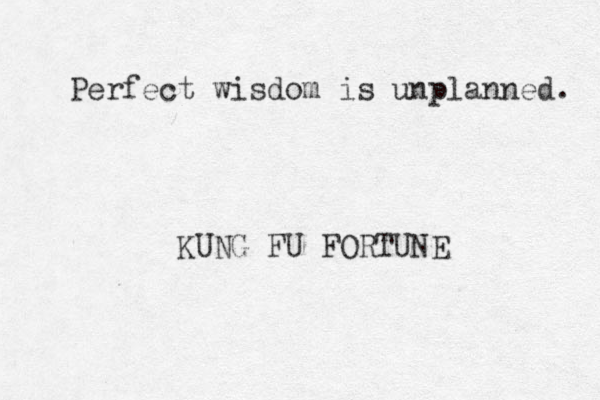 Perfect wisdom is unplanned.
KUNG FU FORTUNE